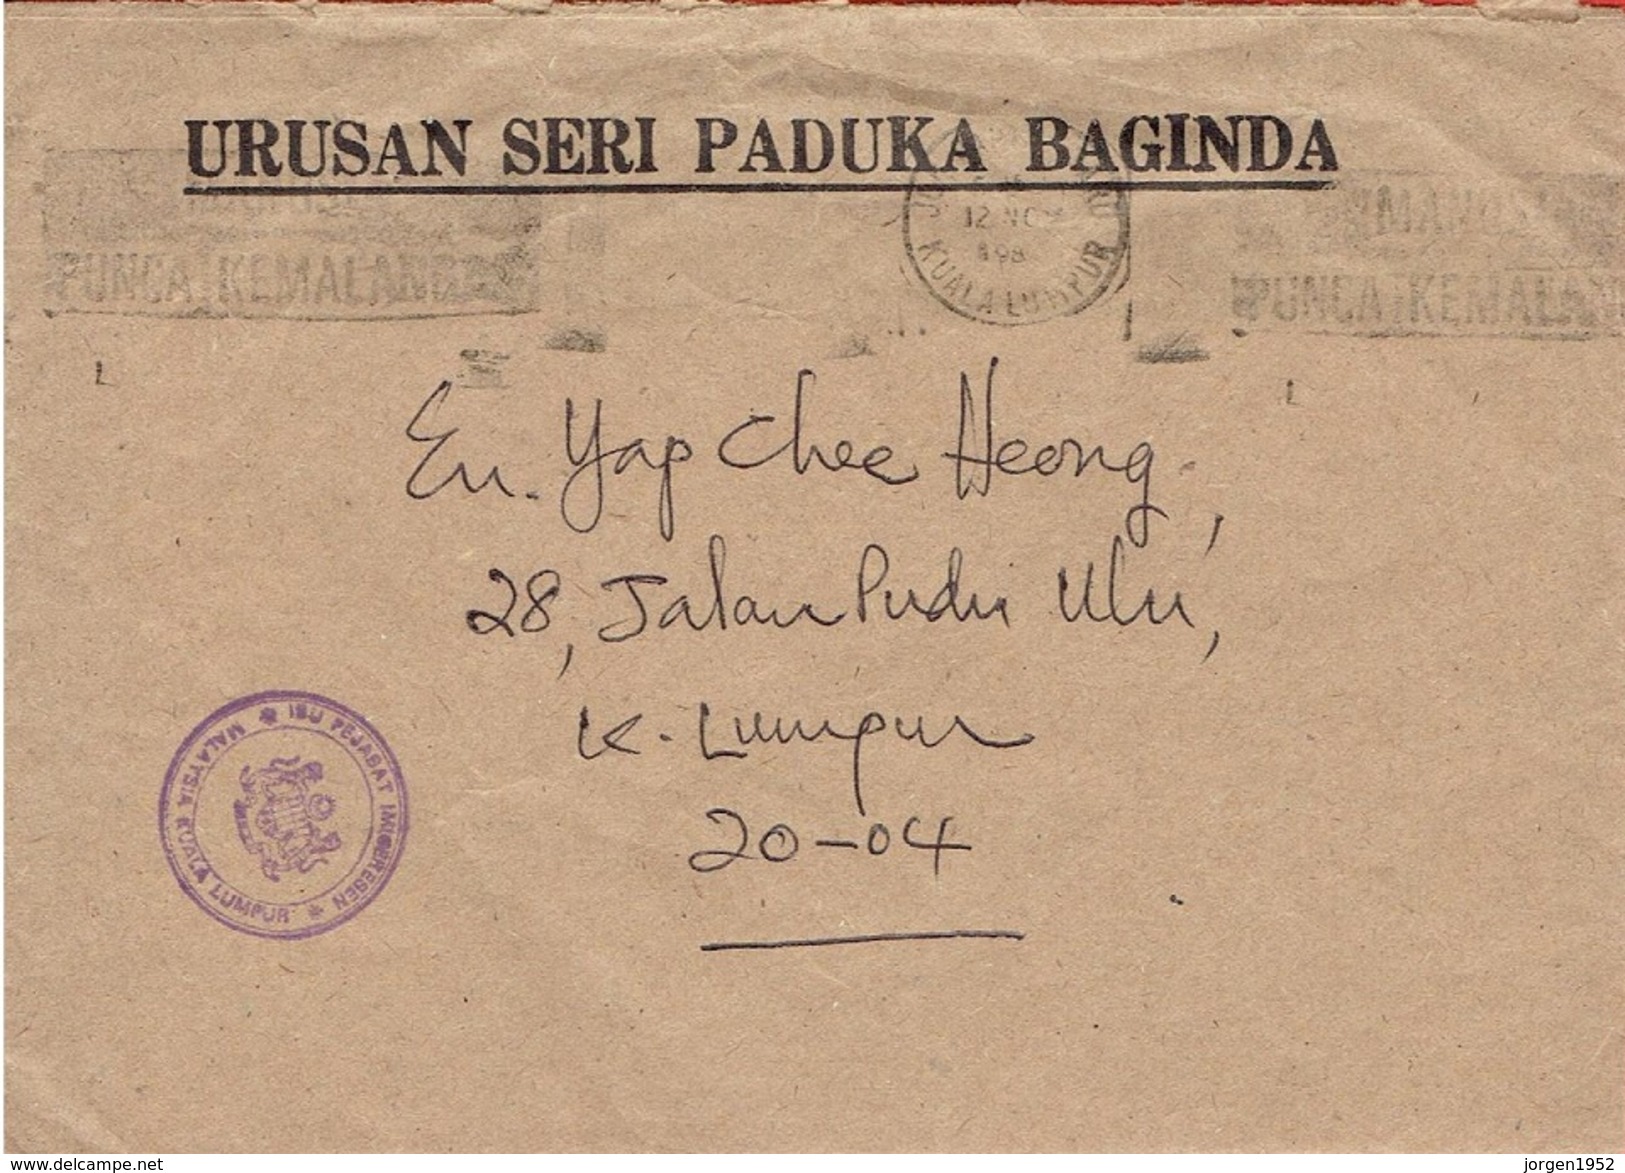 URUSAN SERI PADUKA BAGINDA
12 NO
198
KUALA LUMPUR
PUNCA KEMALANG
PUNCA KEMALAN
En. Yap Chee Heong,
28, Jalan Pudu Ulu,
K. Lumpur
20-04
* IBU PEJABAT IMIGRESEN *
MALAYSIA KUALA LUMPUR
www.delcampe.net
jorgen1952